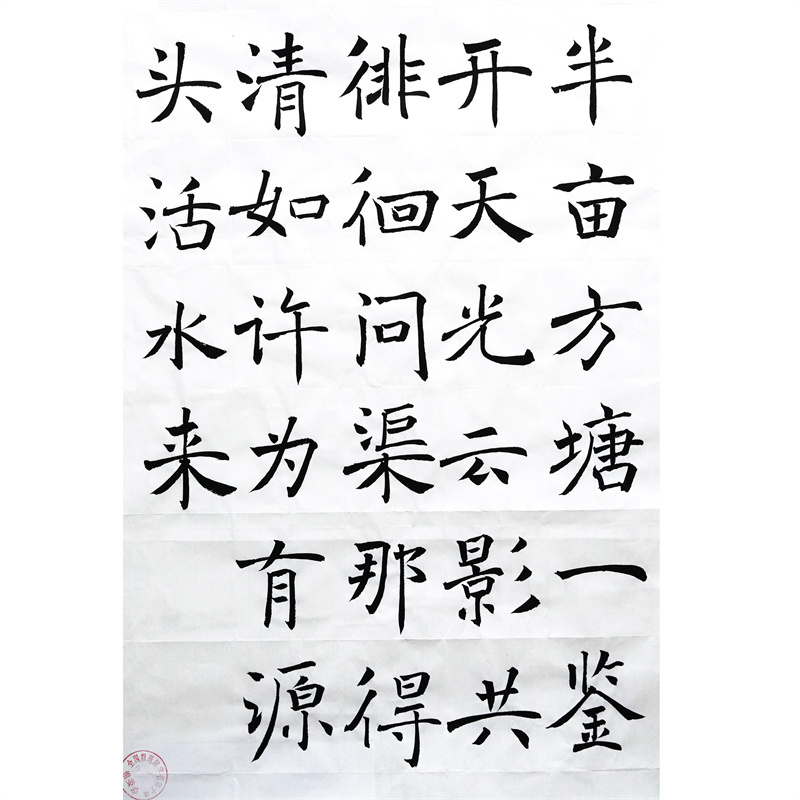 半亩方塘一鉴
开天光云影共
徘徊问渠那得
清如许为有源
头活水来